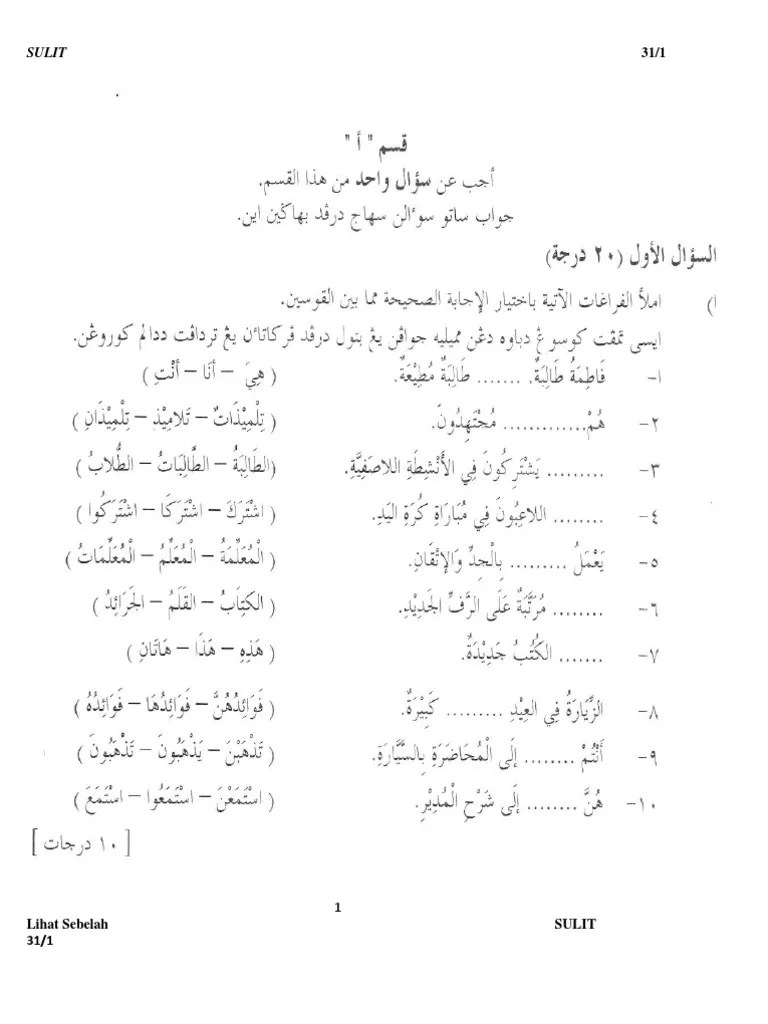 SULIT 31/1
قسم " أ "
أجب عن سؤال واحد من هذا القسم.
جواب ساتو سوءالن سهاج درڤد بهاڬين اين.
السؤال الأول (٢٠ درجة)
ا) املأ الفراغات الآتية باختيار الإجابة الصحيحة مما بين القوسين.
ايسي تمڤت كوسوڠ دباوه دڠن مميليه جواڤن يڠ بتول درڤد ڤركاتاءن يڠ تردڤت ددالم كوروڠن.
١- فَاطِمَةُ طَالِبَةٌ. ....... طَالِبَةٌ مُطِيْعَةٌ. ( هِيَ – أَنَا – أَنْتِ )
٢- هُمْ............. مُجْتَهِدُونَ. ( تِلْمِيْذَاتٌ – تَلَامِيْذِ – تِلْمِيْذَانِ )
٣- ......... يَشْتَرِكُونَ فِي الأَنْشِطَةِ اللاصَفِيَّةِ. (الطَالِبَةُ – الطَّالِبَاتُ – الطُّلابُ )
٤- ........ اللاعِبُونَ فِي مُبَارَاةِ كُرَةِ اليَدِ. ( اشْتَرَكَ – اشْتَرَكَا – اشْتَرَكُوا )
٥- يَعْمَلُ ......... بِالْجِدِّ وَالإِتْقَانِ. ( الْمُعَلِّمَةُ – الْمُعَلِّمُ – الْمُعَلِّمَاتُ )
٦- ........ مُرَتَّبَةٌ عَلَى الرَّفِّ الْجَدِيْدِ. ( الكِتَابُ – القَلَمُ – الْجَرَائِدُ )
٧- ....... الكُتُبُ جَدِيْدَةٌ. ( هَذِهِ – هَذَا – هَاتَانِ )
٨- الزِّيَارَةُ فِي العِيْدِ ......... كَبِيْرَةٌ. ( فَوَائِدُهُنَّ – فَوَائِدُهَا – فَوَائِدُهُ )
٩- أَنْتُمْ ........ إِلَى الْمُحَاضَرَةِ بِالسَّيَّارَةِ. ( تَذْهَبْنَ – يَذْهَبُونَ – تَذْهَبُونَ )
١٠- هُنَّ ........ إِلَى شَرْحِ الْمُدِيْرِ. ( اسْتَمَعْنَ – اسْتَمَعُوا – اسْتَمَعَ )
[ ١٠ درجات ]
1
Lihat Sebelah SULIT
31/1